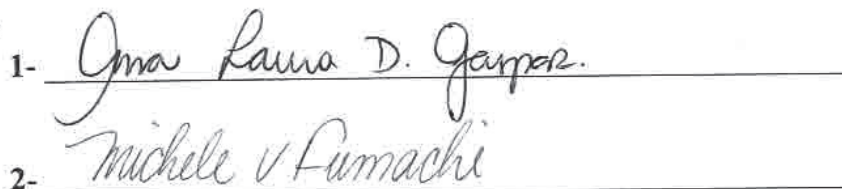 1- Ana Laura D. Gaspar.
2- Michele V Fumachi